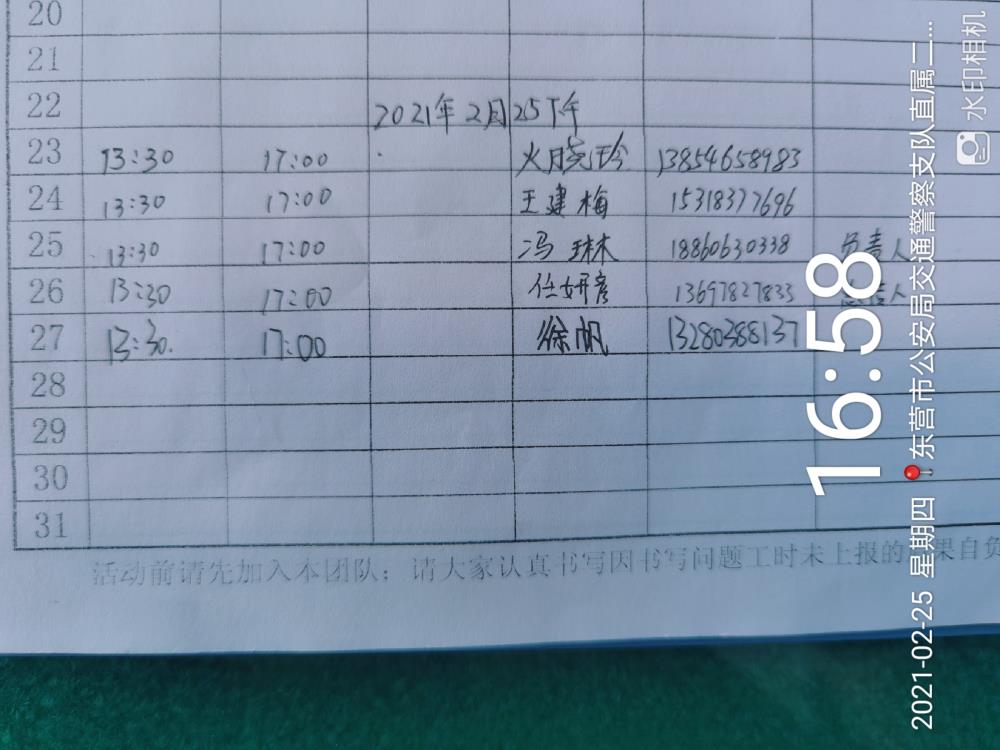 20
21
22 2021年2月25下午
23 13:30 17:00 火晓玲 13854658983
24 13:30 17:00 王建梅 15318377696
25 13:30 17:00 冯琳 18860630338 负责人
26 13:30 17:00 任妍彦 13697827833 人
27 13:30. 17:00 徐帆 13280388137
28
29
30
31
活动前请先加入本团队；请大家认真书写因书写问题工时未上报的 果自负
16:58
2021-02-25 星期四 东营市公安局交通警察支队直属二...
水印相机